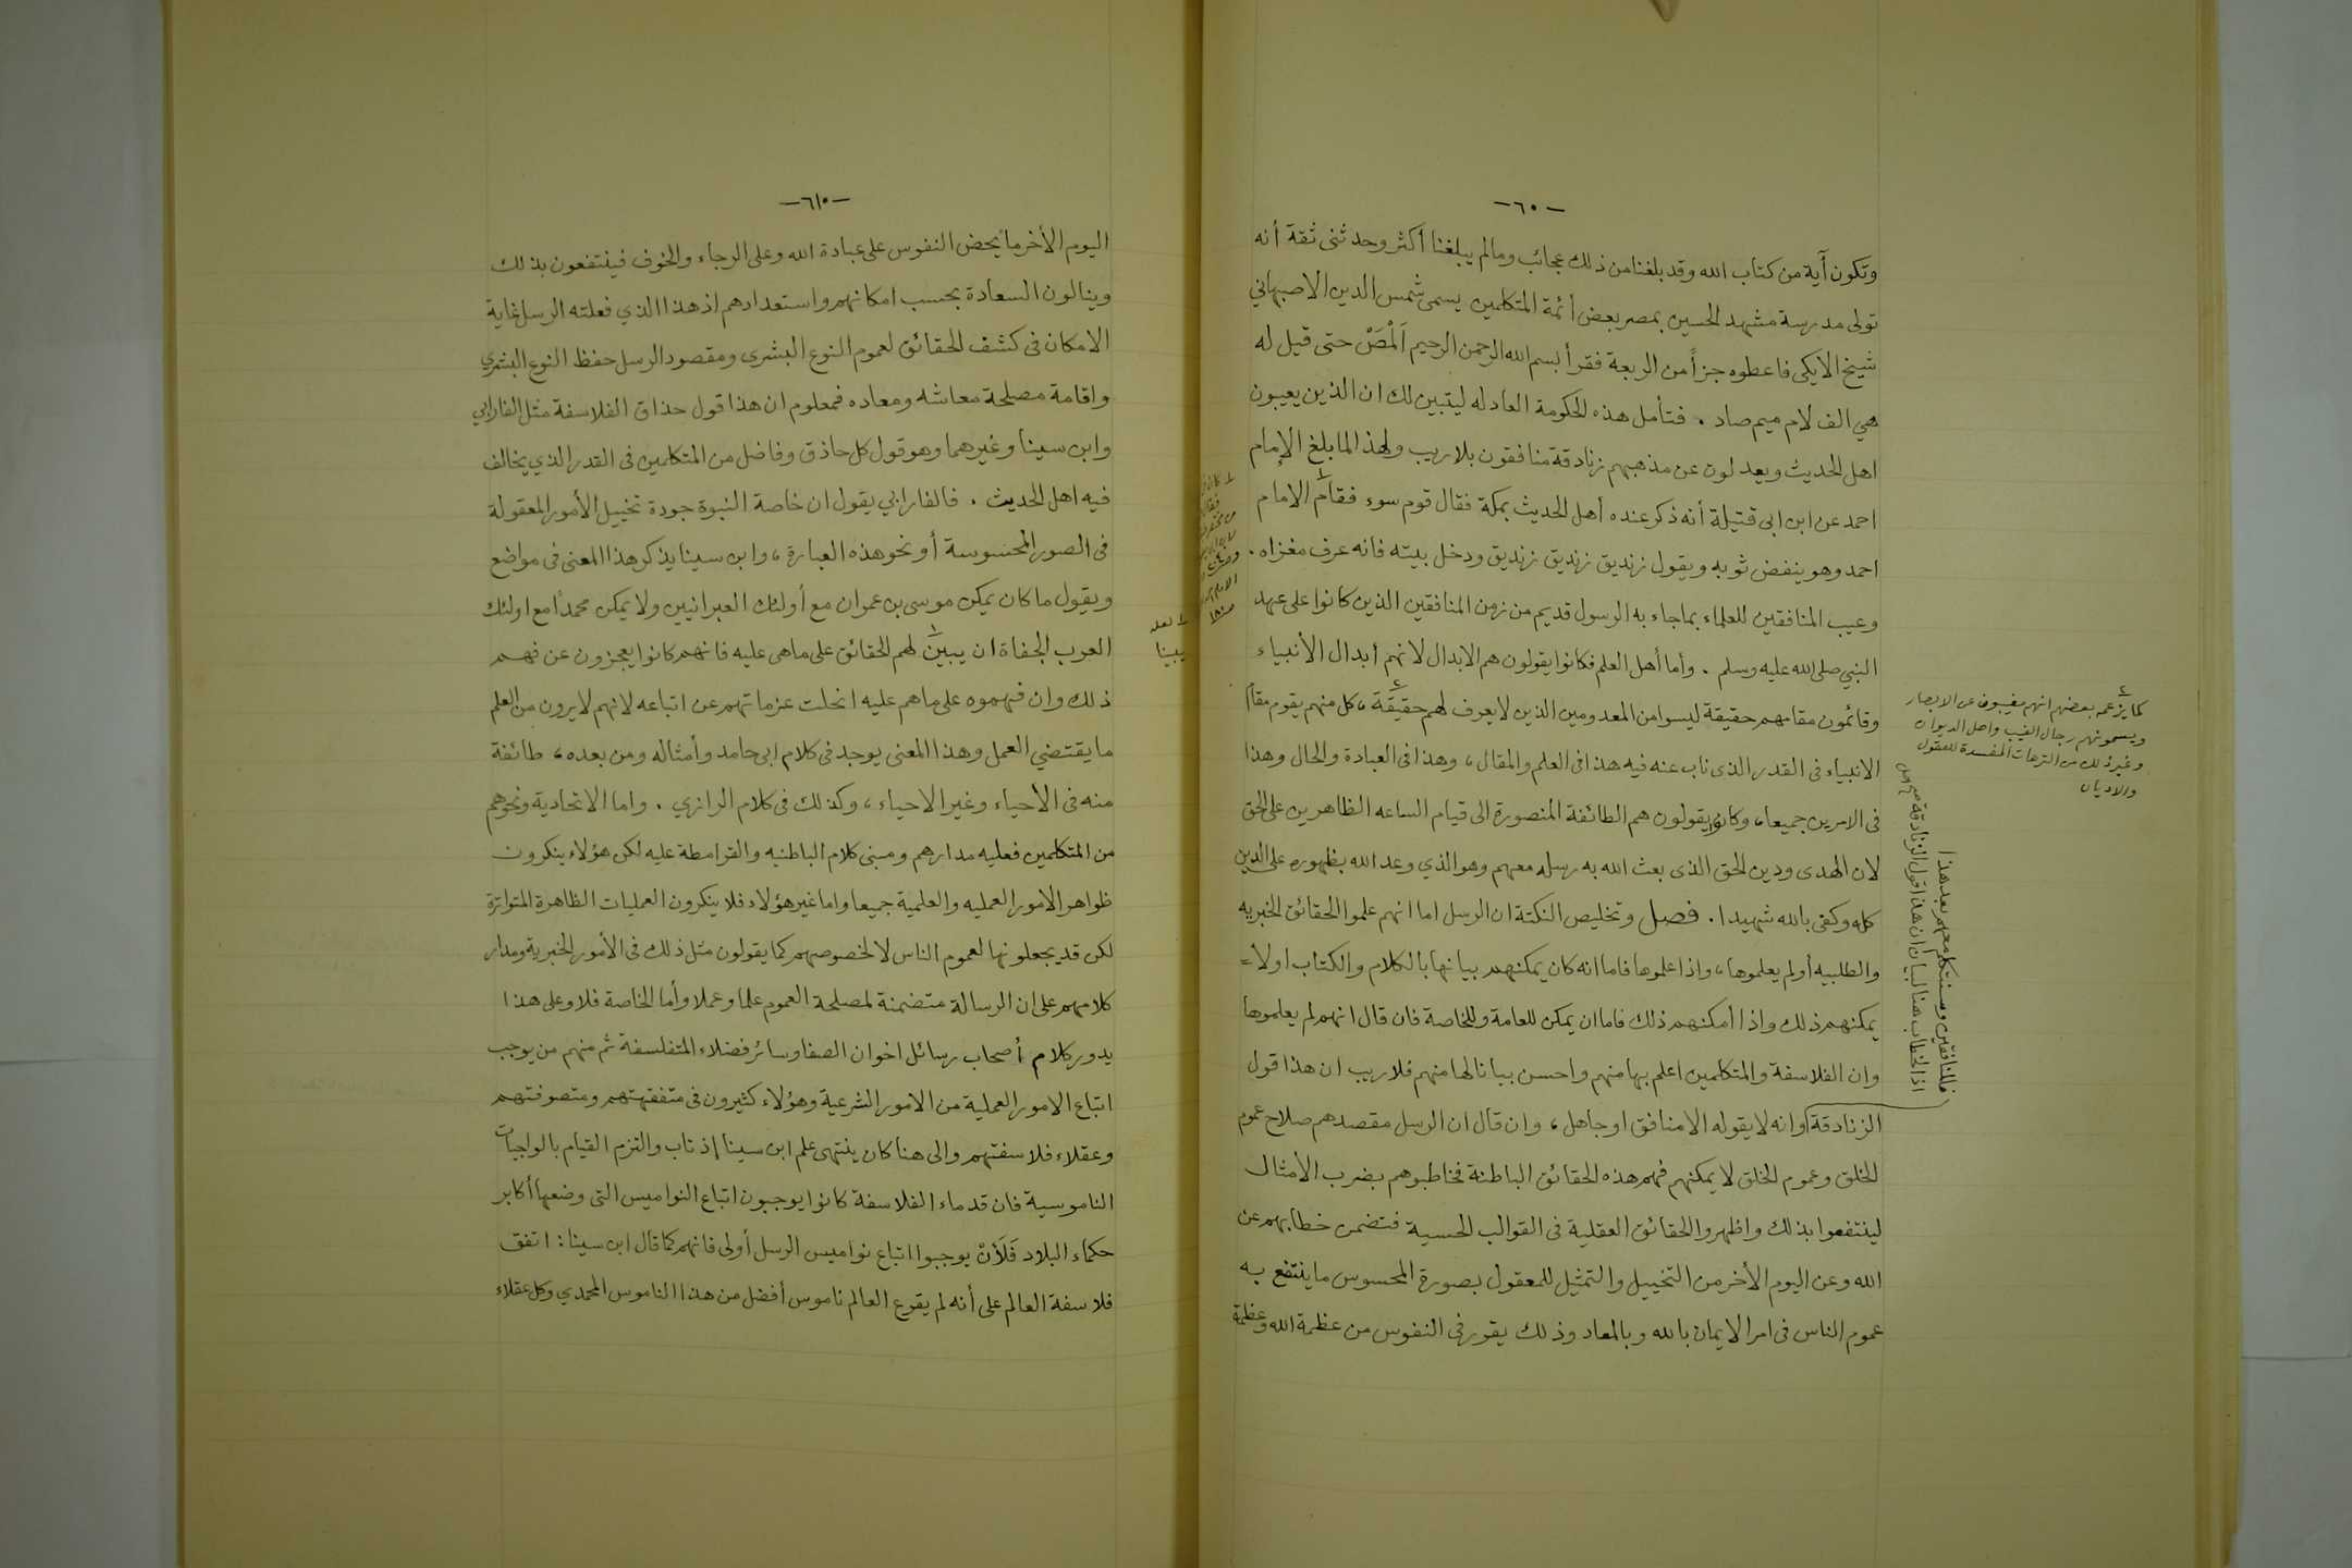 -٦٠-
وتكون آية من كتاب الله وقد بلغنا من ذلك عجائب ومالم يبلغنا أكثر وحدثنى ثقة أنه
تولى مدرسة مشهد الحسين بمصر بعض أئمة المتكلمين يسمى شمس الدين الاصبهاني
شيخ الايكى فاعطوه جزأ من الربعة فقرأ بسم الله الرحمن الرحيم اَلْمَصْ حتى قيل له
هي الف لام ميم صاد . فتأمل هذه الحكومة العادله ليتبين لك ان الذين يعيبون
اهل الحديث ويعدلون عن مذهبهم زنادقة منافقون بلا ريب ولهذا لما بلغ الإمام
احمد عن ابن ابى قتيلة أنه ذكر عنده أهل الحديث بمكة فقال قوم سوء فقام الامام
احمد وهو ينفض ثوبه ويقول زنديق زنديق زنديق ودخل بيته فانه عرف مغزاه .
وعيب المنافقين للعلماء بما جاء به الرسول قديم من زمن المنافقين الذين كانوا على عهد
النبي صلى الله عليه وسلم . وأما أهل العلم فكانوا يقولون هم الابدال لانهم أبدال الأنبياء
وقائمون مقامهم حقيقة ليسوا من المعدومين الذين لا يعرف لهم حقيقة ، كل منهم يقوم مقام
الانبياء فى القدر الذى ناب عنه فيه هذا فى العلم والمقال ، وهذا فى العبادة والحال وهذا
فى الامرين جميعا ، وكانوا يقولون هم الطائفة المنصورة الى قيام الساعه الظاهرين على الحق
لان الهدى ودين الحق الذى بعث الله به رسله معهم وهو الذي وعد الله بظهوره على الدين
كله وكفى بالله شهيدا . فصل وتخليص النكتة ان الرسل اما انهم علموا الحقائق الخبريه
والطلبيه أو لم يعلموها ، واذا علموها فاما انه كان يمكنهم بيانها بالكلام والكتاب اولا =
يمكنهم ذلك واذا أمكنهم ذلك فاما ان يمكن للعامة وللخاصة فان قال انهم لم يعلموها
وان الفلاسفة والمتكلمين اعلم بها منهم واحسن بيانا لها منهم فلا ريب ان هذا قول
الزنادقة وانه لا يقوله الا منافق او جاهل ، وان قال ان الرسل مقصدهم صلاح عموم
الخلق وعموم الخلق لا يمكنهم فهم هذه الحقائق الباطنة فخاطبوهم بضرب الأمثال
لينتفعوا بذلك واظهروا الحقائق العقلية فى القوالب الحسية فتضمن خطابهم عن
الله وعن اليوم الأخر من التخييل والتمثيل للمعقول بصورة المحسوس ما ينتفع به
عموم الناس فى امر الايمان بالله وبالمعاد وذلك يقرر فى النفوس من عظمة الله وعظمة
٢
كما يزعم بعضهم انهم مغيبون عن الابصار
ويسمونهم رجال الغيب واهل الديوان
وغير ذلك من الترهات المفسدة للعقول
والاديان
فللمنافقين وسنتكلم معهم بعد هذا
اذ الخطاب هنا لبيان ان هذا قول الزنادقة
-٦١٠-
اليوم الأخر ما يحض النفوس على عبادة الله وعلى الرجاء والخوف فينتفعون بذلك
وينالون السعادة بحسب امكانهم واستعدادهم اذ هذا الذي فعلته الرسل غاية
الامكان فى كشف الحقائق لعموم النوع البشرى ومقصود الرسل حفظ النوع البشري
واقامة مصلحة معاشه ومعاده فمعلوم ان هذا قول حذاق الفلاسفة مثل الفارابي
وابن سينا وغيرهما وهو قول كل حاذق وفاضل من المتكلمين فى القدر الذي يخالف
فيه اهل الحديث . فالفارابي يقول ان خاصة النبوة جودة تخييل الأمور المعقولة
فى الصور المحسوسة أو نحو هذه العبارة ، وابن سينا يذكر هذا المعنى فى مواضع
ويقول ما كان يمكن موسى بن عمران مع أولئك العبرانيين ولا يمكن محمدا مع اولئك
العرب الجفاة ان يبين لهم الحقائق على ماهى عليه فانهم كانوا يعجزون عن فهم
ذلك وان فهموه على ماهم عليه انحلت عزماتهم عن اتباعه لانهم لا يرون من العلم
ما يقتضي العمل وهذا المعنى يوجد فى كلام ابى حامد وأمثاله ومن بعده ، طائفة
منه فى الأحياء وغير الاحياء ، وكذلك فى كلام الرازي . واما الاتحادية ونحوهم
من المتكلمين فعليه مدارهم ومبنى كلام الباطنيه والقرامطة عليه لكن هؤلاء ينكرون
ظواهر الامور العمليه والعلمية جميعا واما غير هؤلاء فلا ينكرون العمليات الظاهرة المتواترة
لكن قد يجعلونها لعموم الناس لا لخصوصهم كما يقولون مثل ذلك فى الأمور الخبرية ومدار
كلامهم على ان الرسالة متضمنة لمصلحة العموم علما وعملا وأما الخاصة فلا وعلى هذا
يدور كلام أصحاب رسائل اخوان الصفا وسائر فضلاء المتفلسفة ثم منهم من يوجب
اتباع الامور العملية من الامور الشرعية وهؤلاء كثيرون فى متفقهتهم ومتصوفتهم
وعقلاء فلاسفتهم والى هنا كان ينتهى علم ابن سينا إذ تاب والتزم القيام بالواجبات
الناموسية فان قدماء الفلاسفة كانوا يوجبون اتباع النواميس التى وضعها أكابر
حكماء البلاد فَلَأَنْ يوجبوا اتباع نواميس الرسل أولى فانهم كما قال ابن سينا : اتفق
فلاسفة العالم على أنه لم يقرع العالم ناموس أفضل من هذا الناموس المحمدي وكل عقلاء
١ لعله
يبينا